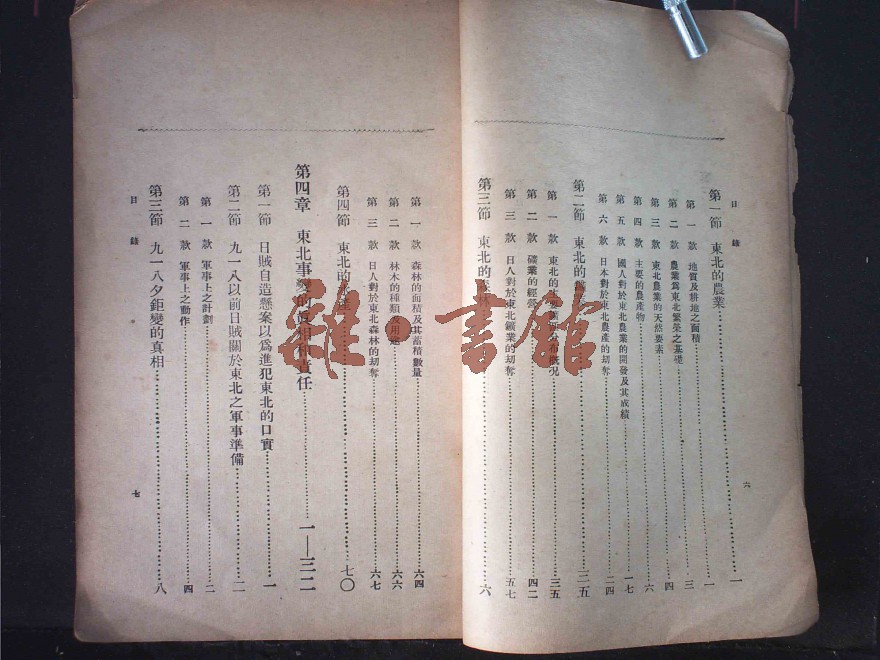 目錄
第一節 東北的農業……一
第一款 地質及耕地之面積……一
第二款 農業為東北繁榮之基礎……三
第三款 東北農業的天然要素……四
第四款 主要的農產物……六
第五款 國人對於東北農業的開發及其成績……一七
第六款 日本對於東北農產的刧奪……二四
第二節 東北的鑛業……二五
第一款 東北的……概況……三五
第二款 礦業的經營……四二
第三款 日人對於東北鑛業的刧奪……五七
第三節 東北的森林……六
六
第一款 森林的面積及其蓄積數量……六四
第二款 林木的種類及用途……六六
第三款 日人對於東北森林的刧奪……六七
第四節 東北的……七〇
第四章 東北事變的真相和責任……一—三二
第一節 日賊自造懸案以爲進犯東北的口實……一
第二節 九一八以前日賊關於東北之軍事準備……二
第一款 軍事上之計劃……二
第二款 軍事上之動作……四
第三節 九一八夕鉅變的真相……八
目錄
七
雜·書館